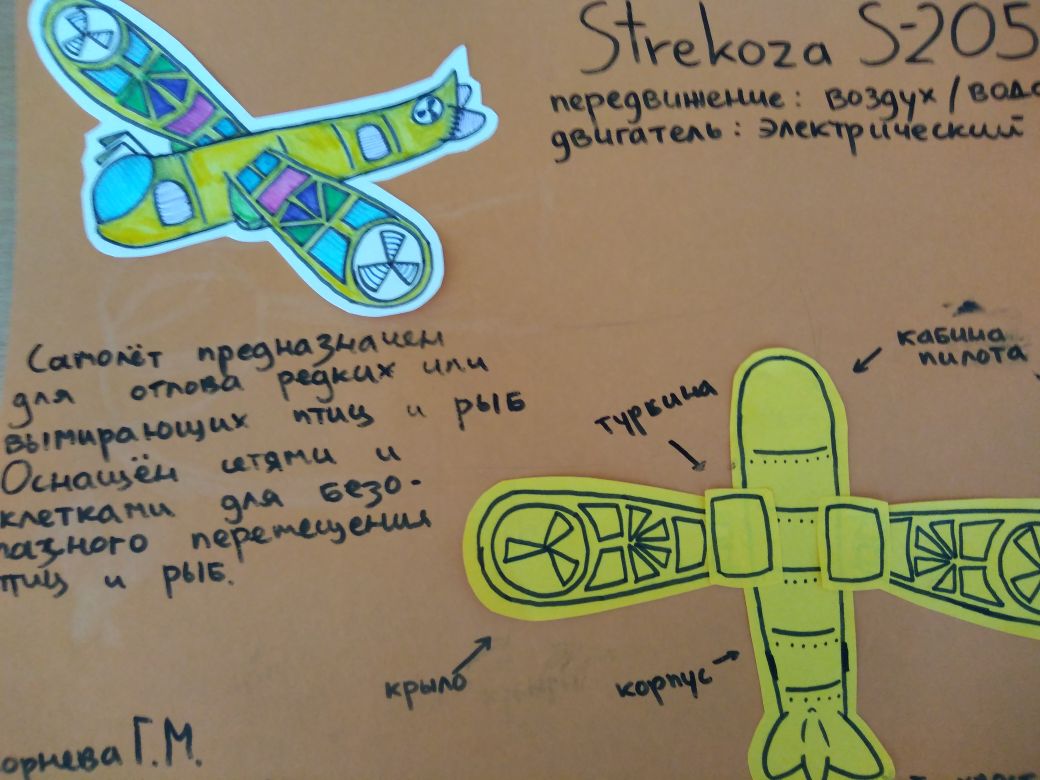 Strekoza S-205
передвижение: воздух/вода
двигатель: электрический
Самолёт предназначен
для отлова редких или
вымирающих птиц и рыб
Оснащён сетями и
клетками для безо-
пазного перемещения
птиц и рыб.
кабина
пилота
турбина
крыло
корпус
орнева Г.М.